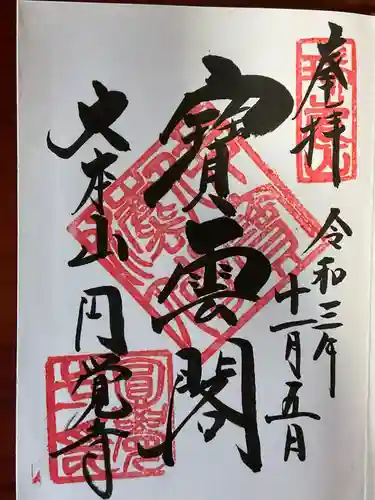 奉拝
令和三年
十一月五日
寳雲閣
大本山
円覚寺